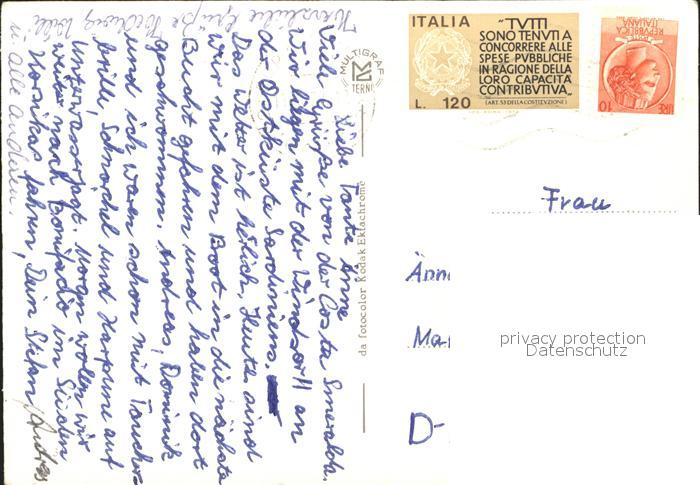 Liebe Tante Anne
Viele Grüße von der Costa Smeralda.
Wir liegen mit der Windsor II an
der Ostküste Sardiniens.
Das Wetter ist herrlich. Heute sind
wir mit dem Boot in die nächste
Bucht gefahren und haben dort
geschwommen. Andreas, Dominik
und ich waren schon mit Taucher-
brille, Schnorchel und Harpune auf
Unterwasserjagd. Morgen wollen wir
weiter nach Bonifacio im Süden
Korsikas fahren, Dein Stefan
Andreas
Herzliche Grüße
alle anderen.
MULTIGRAF
TERNI
da fotocolor Kodak Ektachrome
ITALIA
"TUTTI
SONO TENUTI A
CONCORRERE ALLE
SPESE PUBBLICHE
IN RAGIONE DELLA
LORO CAPACITÀ
CONTRIBUTIVA"
(ART. 53 DELLA COSTITUZIONE)
L. 120
REPUBBLICA
ITALIANA
LIRE 10
Frau
Änn
Ma
D-
privacy protection
Datenschutz